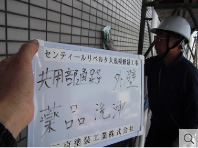 センティールリベルタ大規模修繕工事
共用部通路 外壁
薬品洗浄
京塗装工業株式会社